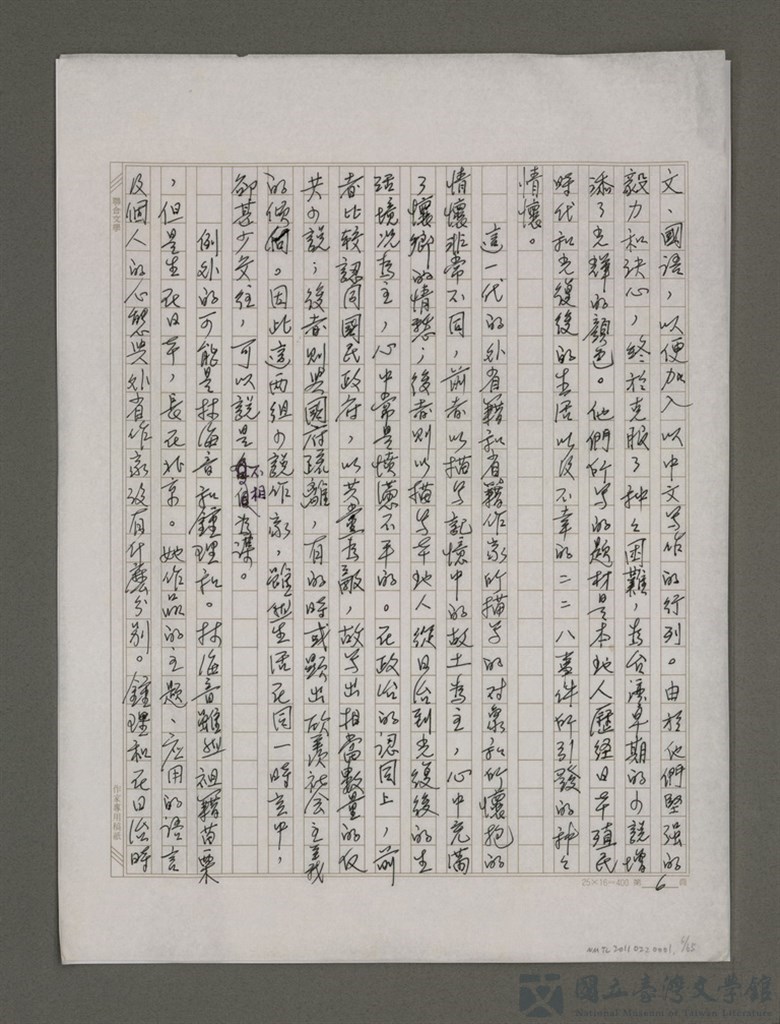 文、國語，以便加入以中文寫作的行列。由於他們堅强的
毅力和決心，終於克服了种々困難，為台湾早期的小説增
添了光輝的顏色。他們所写的題材是本地人歷経日本殖民
時代和光復後的生活以及不幸的二二八事件所引發的种々
情懷。
這一代的外省籍和省籍作家所描写的对象和所懷抱的
情懷非常不同，前者以描写記憶中的故土為主，心中充滿
了懷鄉的情愁；後者則以描写本地人從日治到光復後的生
活境况為主，心中常是憤懣不平的。在政治的認同上，前
者比較認同國民政府，以共黨為敵，故写出相當數量的仅
共小説；後者則與國府疏離，有的時或顕出欣羨社会主義
的傾向。因此這两組小説作家，雖然生活在同一時空中，
卻甚少交往，可以説是不相為謀。
例外的可能是林海音和鍾理和。林海音雖然祖籍苗栗
，但是生在日本，長在北京。她作品的主題、应用的語言
及個人的心態與外省作家沒有什麼分別。鍾理和在日治時
聯合文學
作家專用稿紙
25×16=400 第 6 頁
NMTL 2011 022 0001, 6/25
國立臺灣文學館
National Museum of Taiwan Literature